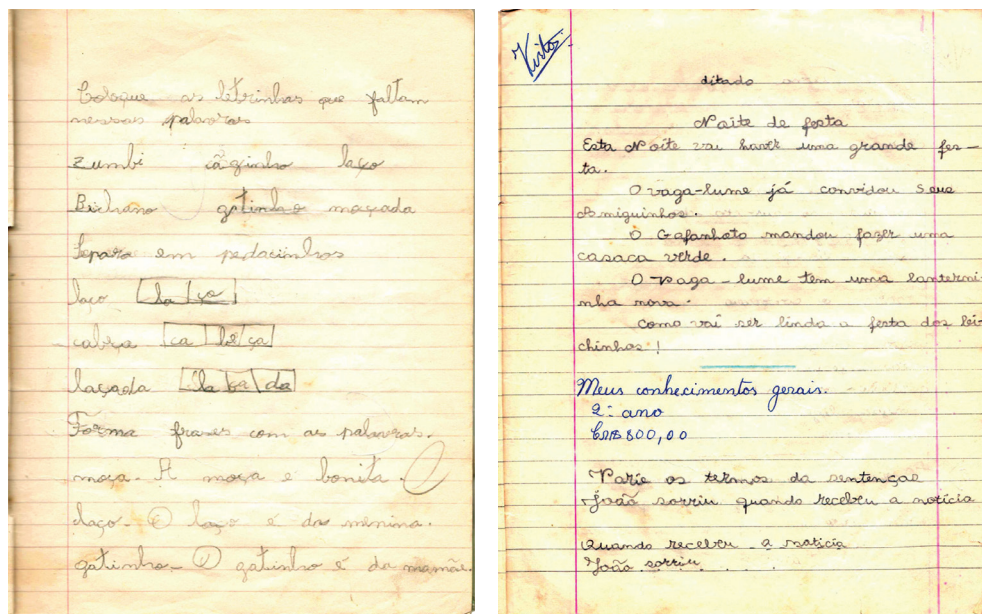 Coloque as letrinhas que faltam
nessas palavras
zumbi cãozinho laço
Bichano gatinho maçada
Separe em pedacinhos
laço la ço
cabeça ca be ça
laçada la ça da
Forma frases com as palavras.
moça. A moça é bonita.
laço. O laço é da menina.
gatinho - O gatinho é da mamãe.
Visto
ditado
Noite de festa
Esta Noite vai haver uma grande fes-
ta.
O vaga-lume já convidou seus
Amiguinhos.
O Gafanhoto mandou fazer uma
casaca verde.
O vaga-lume tem uma lanterni-
nha nova.
como vai ser linda a festa dos bi-
chinhos!
Meus conhecimentos gerais.
2º ano
CR$ 800,00
Varie os termos da sentença
João sorriu quando recebeu a notícia
Quando recebeu a noticia
João sorriu